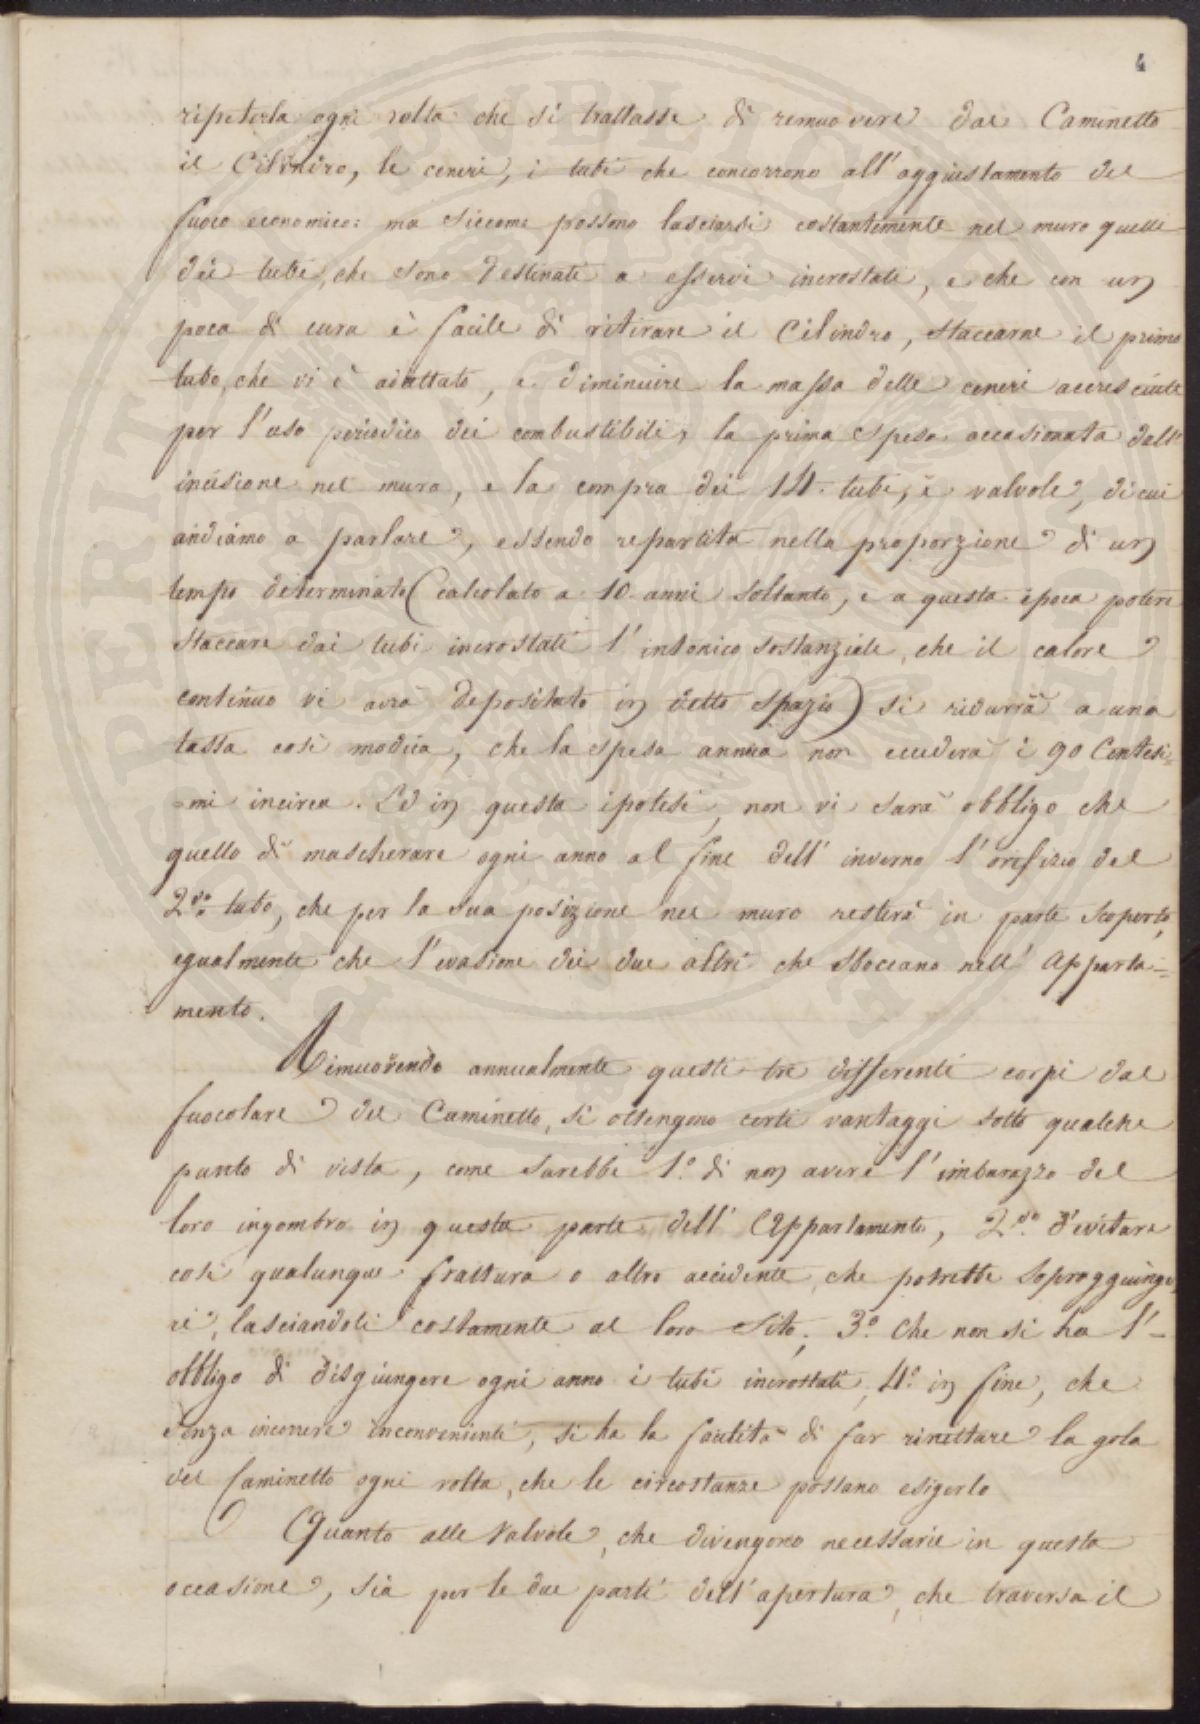 4
ripeterla ogni volta che si trattasse di remuovere dal Caminetto
il Cilindro, le ceneri, i tubi che concorrono all'aggiustamento del
fuoco economico: ma siccome possono lasciarsi costantemente nel muro quelli
dei tubi, che sono destinati a esservi incrostati, e che con un
poca di cura è facile di ritirare il Cilindro, staccarne il primo
tubo, che vi è adattato, e diminuire la massa delle ceneri accresciute
per l'uso periodico dei combustibili, la prima spesa occasionata dall'
incisione nel muro, e la compra dei 14. tubi, e valvole, di cui
andiamo a parlare, essendo repartita nella proporzione di un
tempo determinato (calcolato a 10. anni soltanto, e a questa epoca potere
staccare dai tubi incrostati l'intonico sostanziale, che il calore
continuo vi avrà depositato in detto spazio) si ridurrà a una
tassa così modica, che la spesa annua non eccederà i 90 Centesi=
=mi incirca. Ed in questa ipotesi, non vi sarà obbligo che
quello di mascherare ogni anno al fine dell'inverno l'orifizio del
2.do tubo, che per la sua posizione nel muro resterà in parte scoperto,
egualmente che l'evasione dei due altri che sboccano nell'Apparta=
mento.
Rimuovendo annualmente questi tre differenti corpi dal
fuocolare del Caminetto, si ottengono certi vantaggi sotto qualche
punto di vista, come sarebbe 1.° di non avere l'imbarazzo del
loro ingombro in questa parte dell'Appartamento, 2.do d'evitare
così qualunque frattura o altro accidente, che potrebbe sopraggiunge
re, lasciandoli costamente al loro Sito; 3.° Che non si ha l'
obbligo di disgiungere ogni anno i tubi incrostati, 4.° in fine, che
senza incorrere inconvenienti, si ha la facilità di far rinettare la gola
del Caminetto ogni volta, che le circostanze possano esigerlo
Quanto alle Valvole, che divengono necessarie in questa
occasione, sia per le due parti dell'apertura, che traversa il